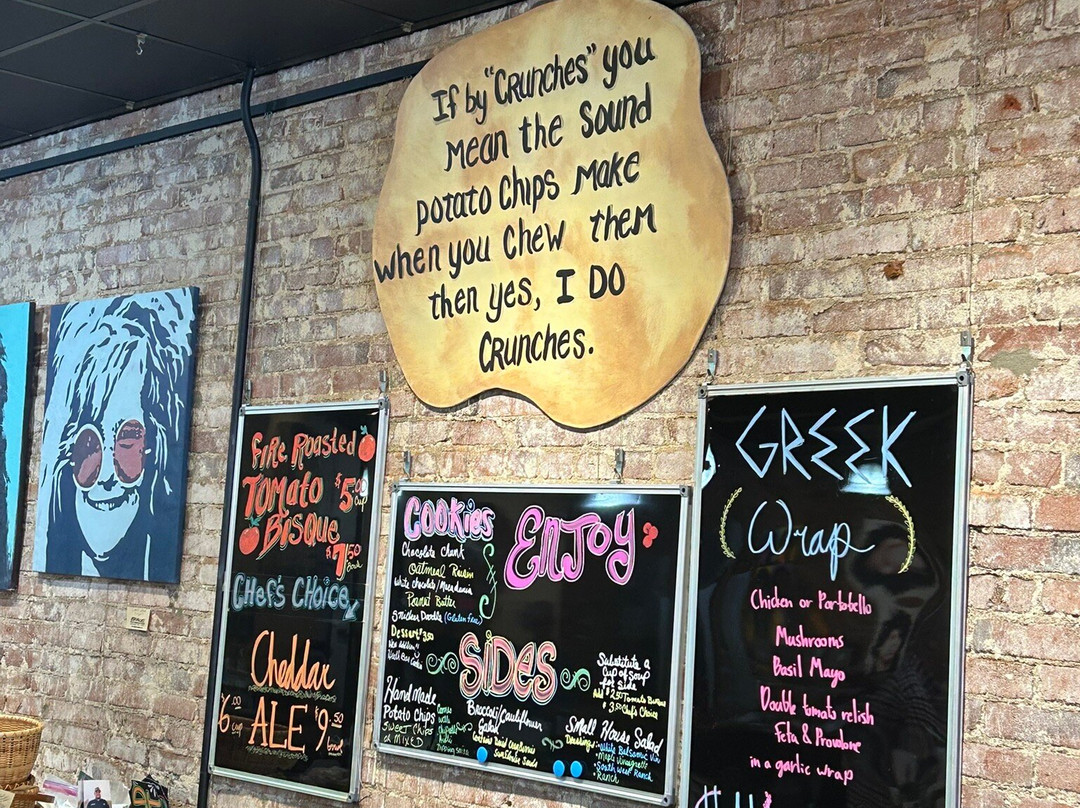 If by "Crunches" you
mean the Sound
potato Chips make
when you Chew them
then yes, I DO
Crunches.
Fire Roasted
Tomato $5.00 Cup
Bisque
$7.50 Bowl
Chef's Choice
Cheddar
ALE $9.50 bowl
Cookies
Chocolate Chunk
Oatmeal Raisin
White Chocolate/Macadamia
Peanut Butter
Snicker Doodle (Gluten Free)
Dessert $3.50
Enjoy
Sides
Handmade
Potato Chips
Sweet Chips
or Mixed
Broccoli/Cauliflower
Salad
Contains Dried Cranberries
Sunflower Seeds
Substitute a
Cup of Soup
for Side
Add $2.50 Tomato Bisque
$3.50 Chef's Choice
Small House Salad
Dressings:
White Balsamic Vin
Maple Vinaigrette
South West Ranch
Ranch
GREEK
Wrap
Chicken or Portobello
Mushrooms
Basil Mayo
Double tomato relish
Feta & Provolone
in a garlic wrap